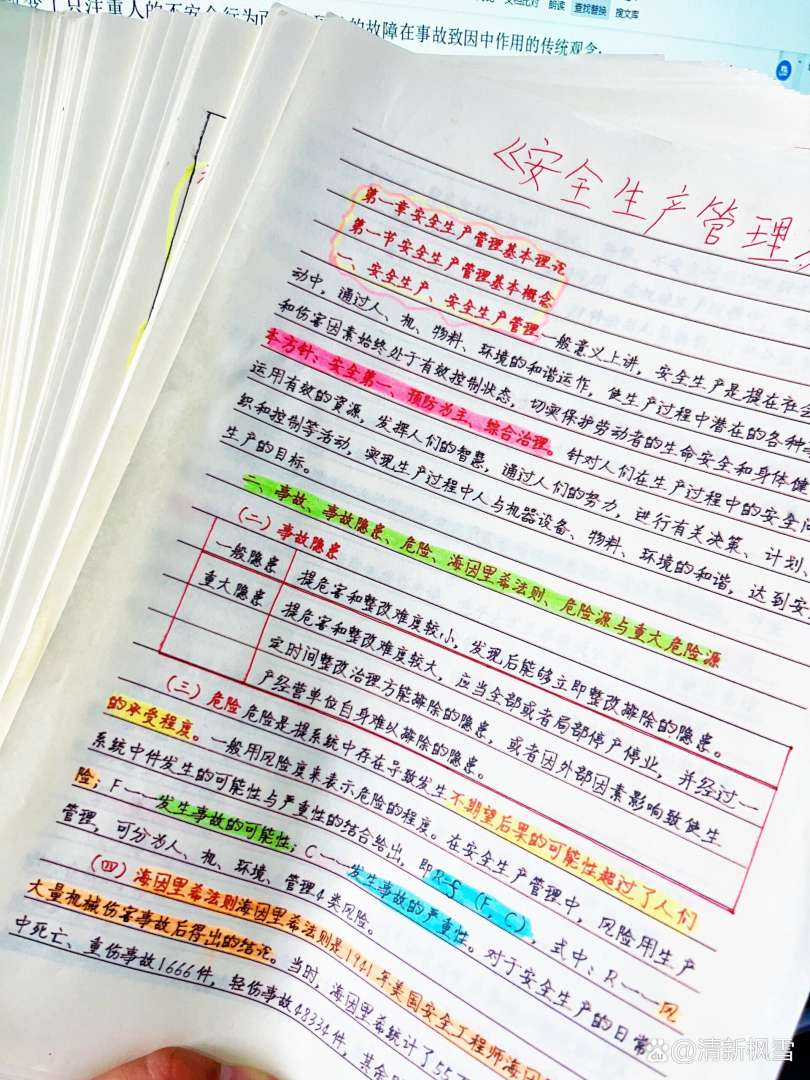 只注重人的不安全行为
的故障在事故致因中作用的传统观念;
朗读
查找替换
搜文库
《安全生产管理
第一章安全生产管理基本理论
第一节安全生产管理基本概念
一、安全生产、安全生产管理
一般意义上讲，安全生产是提在社会
动中，通过人、机、物料、环境的和谐运作，使生产过程中潜在的各种事
和伤害因素始终处于有效控制状态，切实保护劳动者的生命安全和身体健
丰方针、安全第一、预防为主、综合治理。针对人们在生产过程中的安全问
运用有效的资源，发挥人们的智慧，通过人们的努力，进行有关决策、计划、
织和控制等活动，实现生产过程中人与机器设备、物料、环境的和谐，达到安
生产的目标。
二、事故、事故隐患、危险、海因里希法则、危险源与重大危险源
(二）事故隐患
一般隐患 提危害和整改难度较小，发现后能够立即整改排除的隐患。
重大隐患 提危害和整改难度较大，应当全部或者局部停产停业，并经过一
定时间整改治理方能排除的隐患，或者因外部因素影响致使生
产经营单位自身难以排除的隐患。
(三）危险 危险是提系统中存在导致发生不期望后果的可能性超过了人们
的承受程度。一般用风险度来表示危险的程度。在安全生产管理中，风险用生产
系统中件发生的可能性与严重性的结合给出，即R=f（F，C），式中：R——风
险；F——发生事故的可能性；C——发生事故的严重性。对于安全生产的日常
管理，可分为人、机、环境、管理4类风险。
(四）海因里希法则海因里希法则是1941年美国安全工程师海因
大量机械伤害事故后得出的结论。当时，海因里希统计了55万
中死亡、重伤事故1666件，轻伤事故48334件，其余
清新枫雪